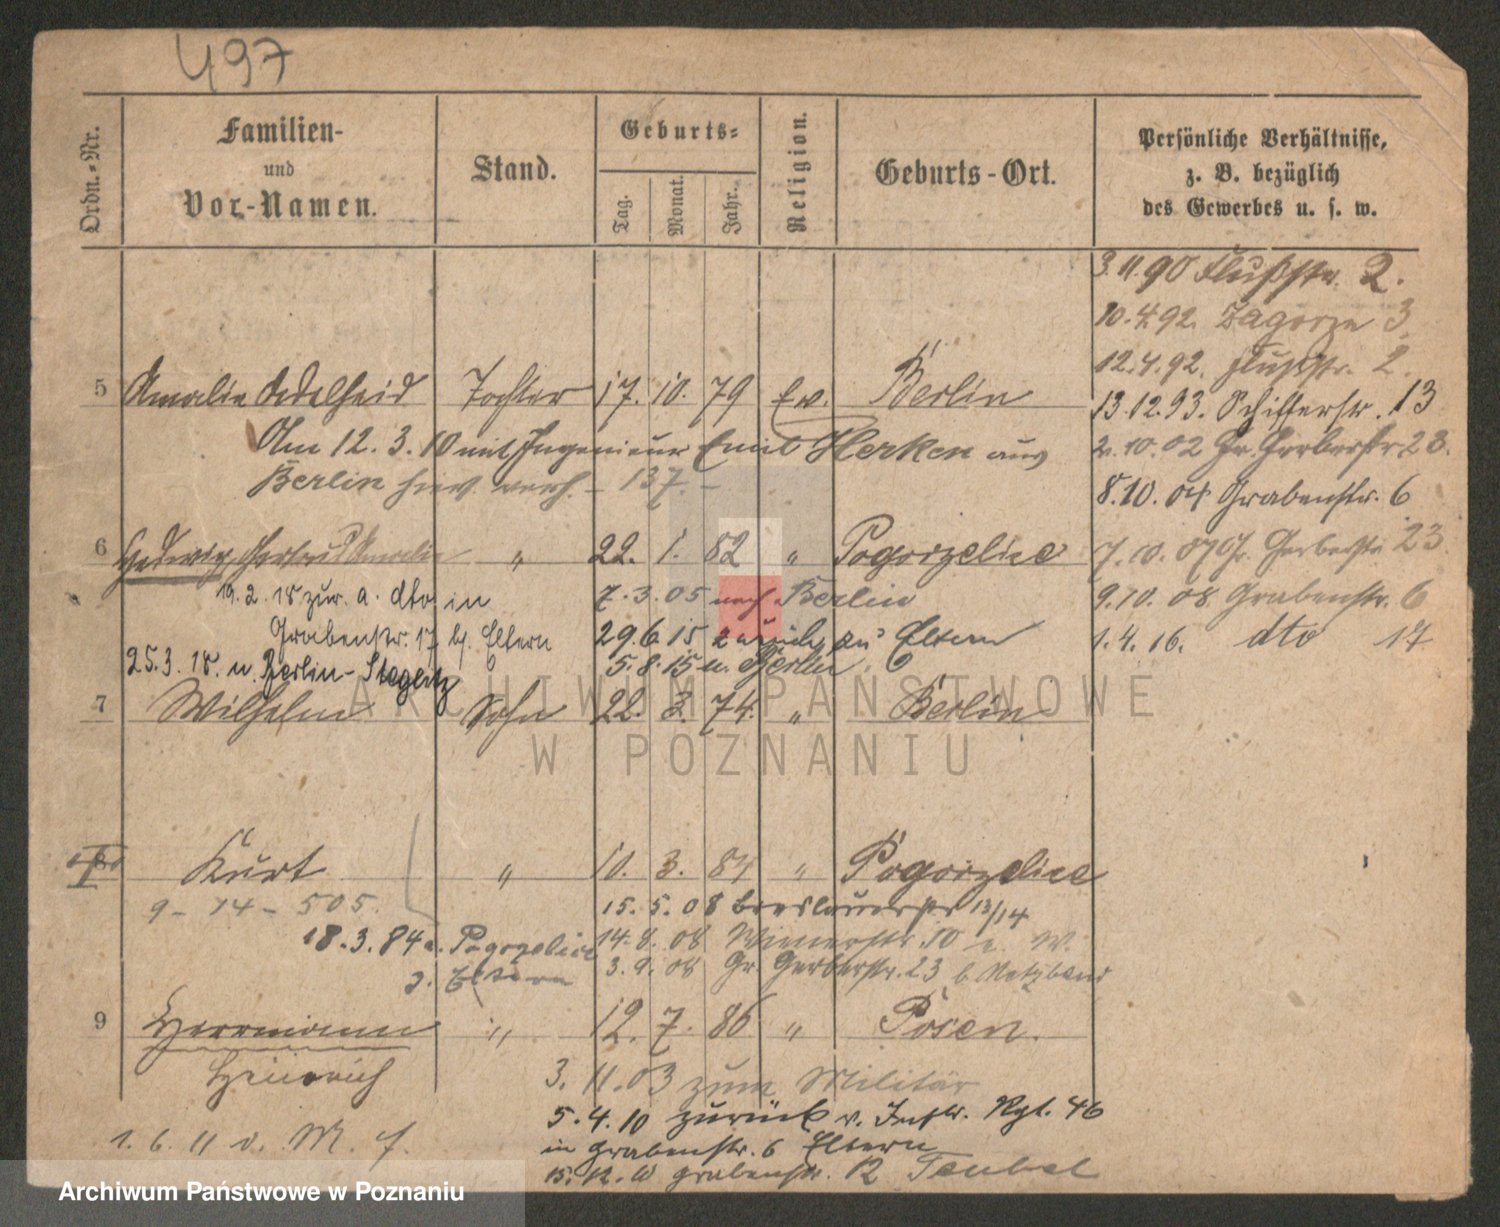 497
Ordn.-Nr.
Familien-
und
Vor-Namen.
Stand.
Geburts-
Tag.
Monat.
Jahr.
Religion.
Geburts-Ort.
Persönliche Verhältnisse,
z. B. bezüglich
des Gewerbes u. s. w.
3.11.90 Flußstr. 2.
10.4.92. Zagorze 3
12.4.92. Flußstr. 2.
5 Amalie Adelheid Tochter 17. 10. 79 Ev. Berlin
13.12.93. Schifferstr. 13
Am 12.3.10 mit Ingenieur Emil Herken aus
2.10.02 Gr. Gerberstr 23.
Berlin hier verh. - 137. -
8.10.04 Grabenstr. 6
6 Hedwig Gertrud Amalie " 22. 1. 82 " Pogorzelice
7.10.07 Gr. Gerberstr 23
19.2.18 zur. a. dto in
7.3.05 nach Berlin
9.10.08 Grabenstr. 6
Grabenstr. 17 b. Eltern
29.6.15 zurück zu Eltern
1.4.16. dto 17
25.3.18. n. Berlin-Steglitz
5.8.15 n. Berlin
7 Wilhelm Sohn 22. 3. 74. " Berlin
Kurt " 10. 3. 84 " Pogorzelice
9-14-505.
15.5.08 Breslauerstr 13/14
18.3.84 a. Pogorzelice
14.8.08 Wienerstr. 10
z. Eltern
3.9.08 Gr. Gerberstr. 23 b. Netzband
9 Herrmann " 12. 7. 86 " Posen.
Heinrich
3.11.03 zum Militär
5.4.10 zurück v. Inftr. Rgt. 46
1.6.11 v. M. f.
in Grabenstr. 6 Eltern
15.12.10 Grabenstr. 12 Teubel
ARCHIWUM PAŃSTWOWE
W POZNANIU
Archiwum Państwowe w Poznaniu